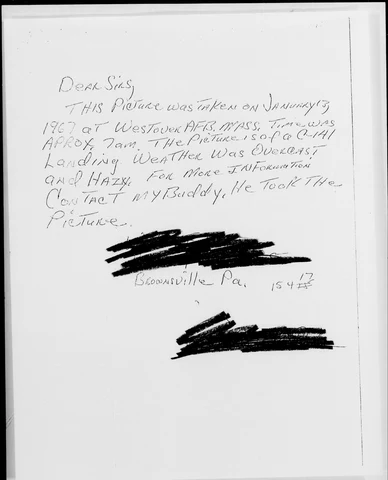 Dear Sirs,
This Picture was taken on January 13,
1967 at Westover AFB. Mass. Time was
Aprox. 7am. The Picture is of a C-141
Landing Weather was Overcast
and Hazy. For more Information
Contact my Buddy, He took the
Picture.
Brownsville Pa. 154